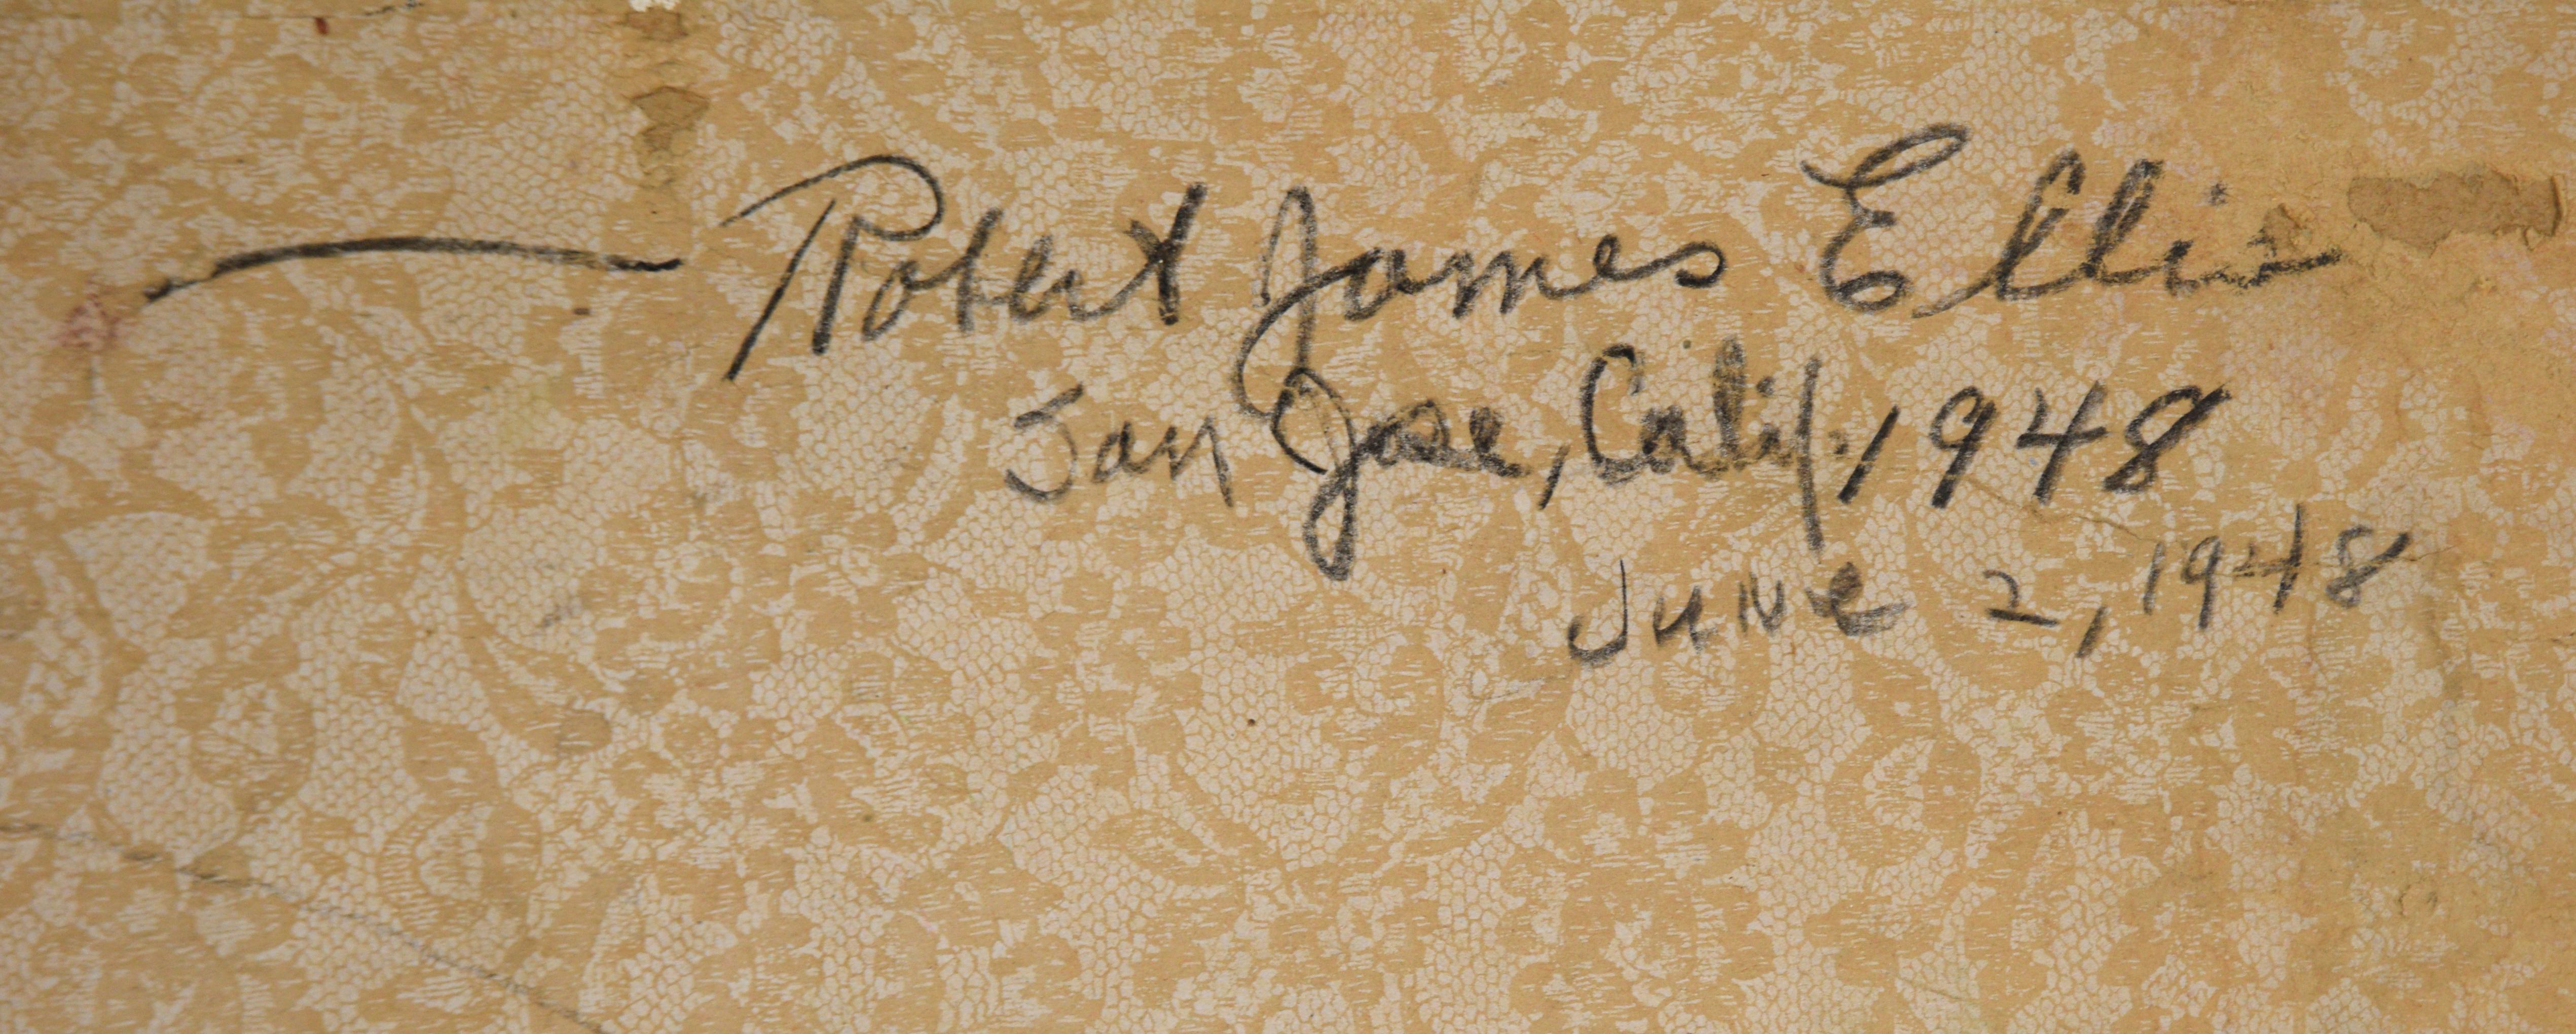 — Robert James Ellis
San Jose, Calif. 1948
June 2, 1948